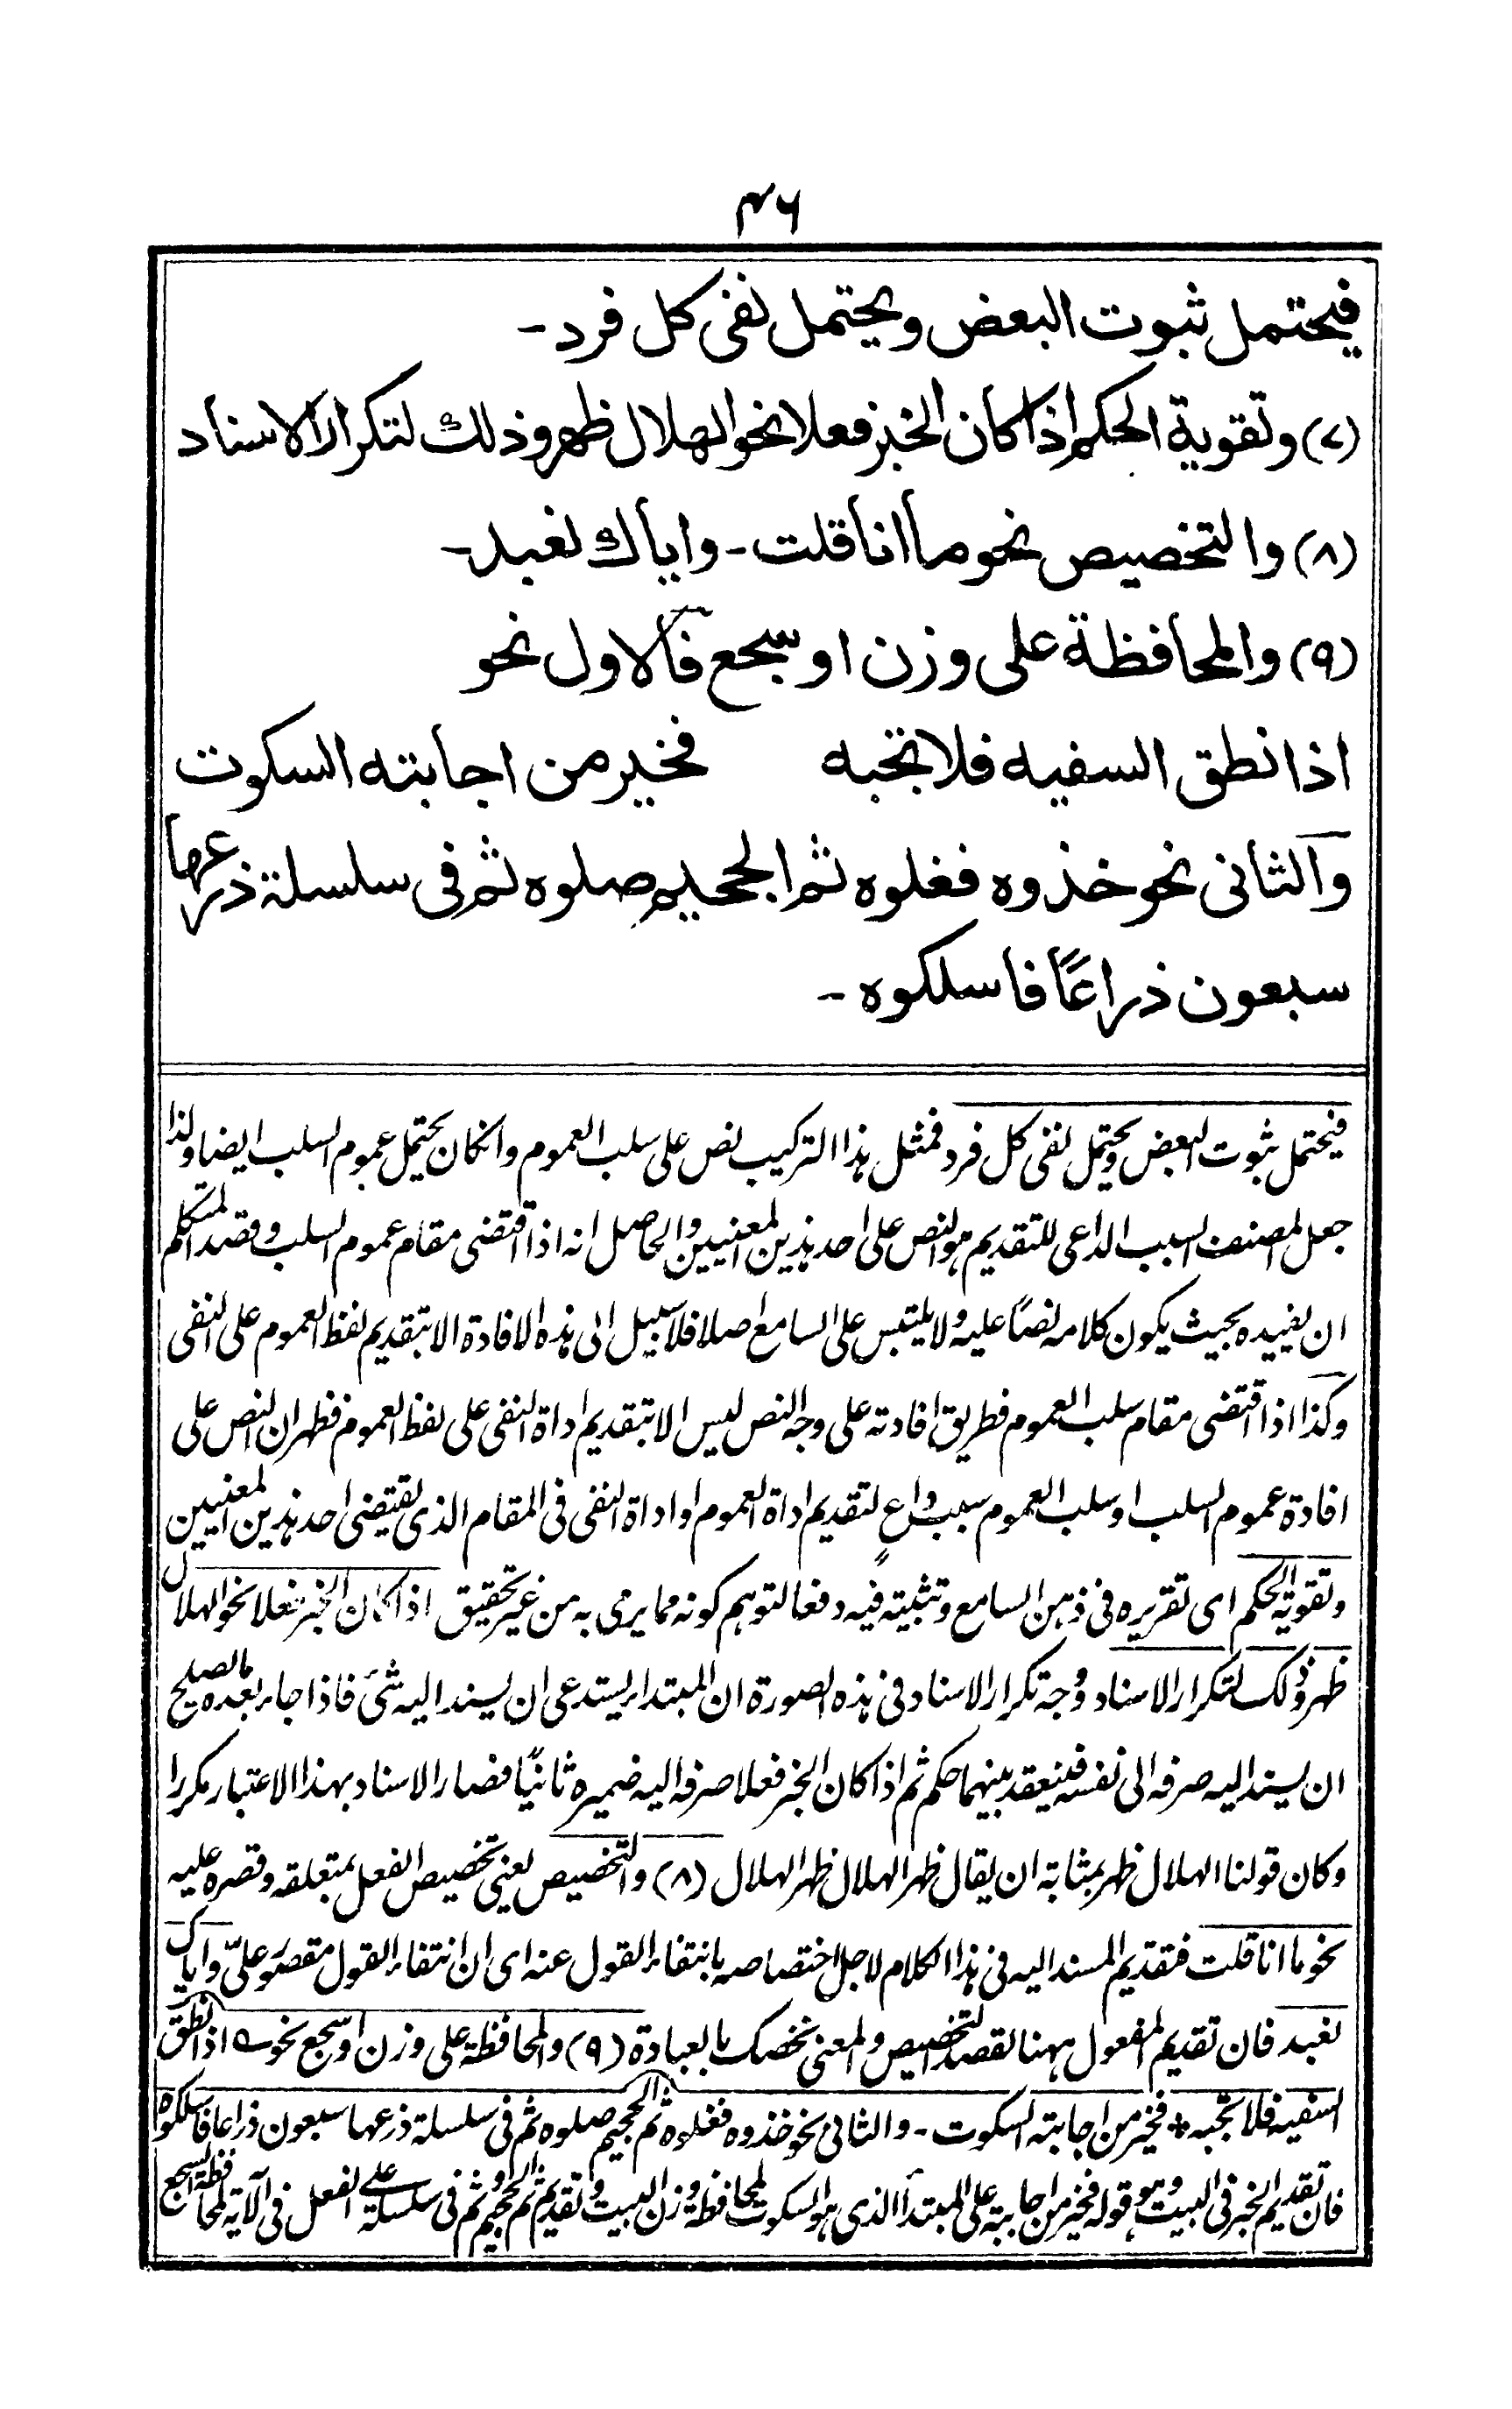 ۴۶
فيحتمل ثبوت البعض ويحتمل نفى كل فرد-
(٧) وتقوية الحكم اذا كان الخبر فعلا نحو الهلال ظهر وذلك لتكرار الاسناد
(٨) والتخصيص نحو ما انا قلت- واياك نعبد-
(٩) والمحافظة على وزن او سجع فالاول نحو
اذا نطق السفيه فلا تجبه فخير من اجابته السكوت
والثانى نحو خذوه فغلوه ثم الجحيم صلوه ثم فى سلسلة ذرعها
سبعون ذراعًا فاسلكوه-
فيحتمل ثبوت البعض ويحتمل نفى كل فرد فمثل هذا التركيب نص على سلب العموم وانكان يحتمل عموم السلب ايضا ولذا
جعل المصنف السبب الداعى للتقديم هو النص على احد هذين المعنيين والحاصل انه اذا اقتضى مقام عموم السلب وقصد المتكلم
ان يفيده بحيث يكون كلامه نصًا عليه ولا يلتبس على السامع اصلا فلا سبيل الى هذه الافادة الا بتقديم لفظ العموم على النفى
وكذا اذا اقتضى مقام سلب العموم فطريق افادته على وجه النص ليس الا بتقديم اداة النفى على لفظ العموم فظهر ان النص على
افادة عموم السلب او سلب العموم سبب داعٍ لتقديم اداة العموم او اداة النفى فى المقام الذى يقتضى احد هذين المعنيين
وتقوية الحكم اى تقريره فى ذهن السامع وتثبيته فيه دفعا لتوهم كونه مما يرمى به من غير تحقيق اذا كان الخبر فعلا نحو الهلال
ظهر وذلك لتكرار الاسناد ووجه تكرار الاسناد فى هذه الصورة ان المبتداء يستدعى ان يسند اليه شئ فاذا جاء بعده ما يصلح
ان يسند اليه صرفه الى نفسه فينعقد بينهما حكم ثم اذا كان الخبر فعلا صرفه اليه ضميره ثانيًا فصار الاسناد بهذا الاعتبار مكررا
وكان قولنا الهلال ظهر بمثابة ان يقال ظهر الهلال ظهر الهلال (٨) والتخصيص يعنى تخصيص الفعل بمتعلقه وقصره عليه
نحو ما انا قلت فتقديم المسند اليه فى هذا الكلام لاجل اختصاصه بانتفاء القول عنه اى ان انتفاء القول مقصور علىّ واياك
نعبد فان تقديم المفعول ههنا لقصد التخصيص والمعنى نخصك بالعبادة (٩) والمحافظة على وزن او سجع نحو اذا نطق
السفيه فلا تجبه فخير من اجابته السكوت- والثانى نحو خذوه فغلوه ثم الجحيم صلوه ثم فى سلسلة ذرعها سبعون ذراعا فاسلكوه
فان تقديم الخبر فى البيت وهو قوله فخير من اجابته على المبتدأ الذى هو السكوت لمحافظة وزن البيت وتقديم ثم الجحيم وثم فى سلسلة على الفعل فى الآية لمحافظة السجع